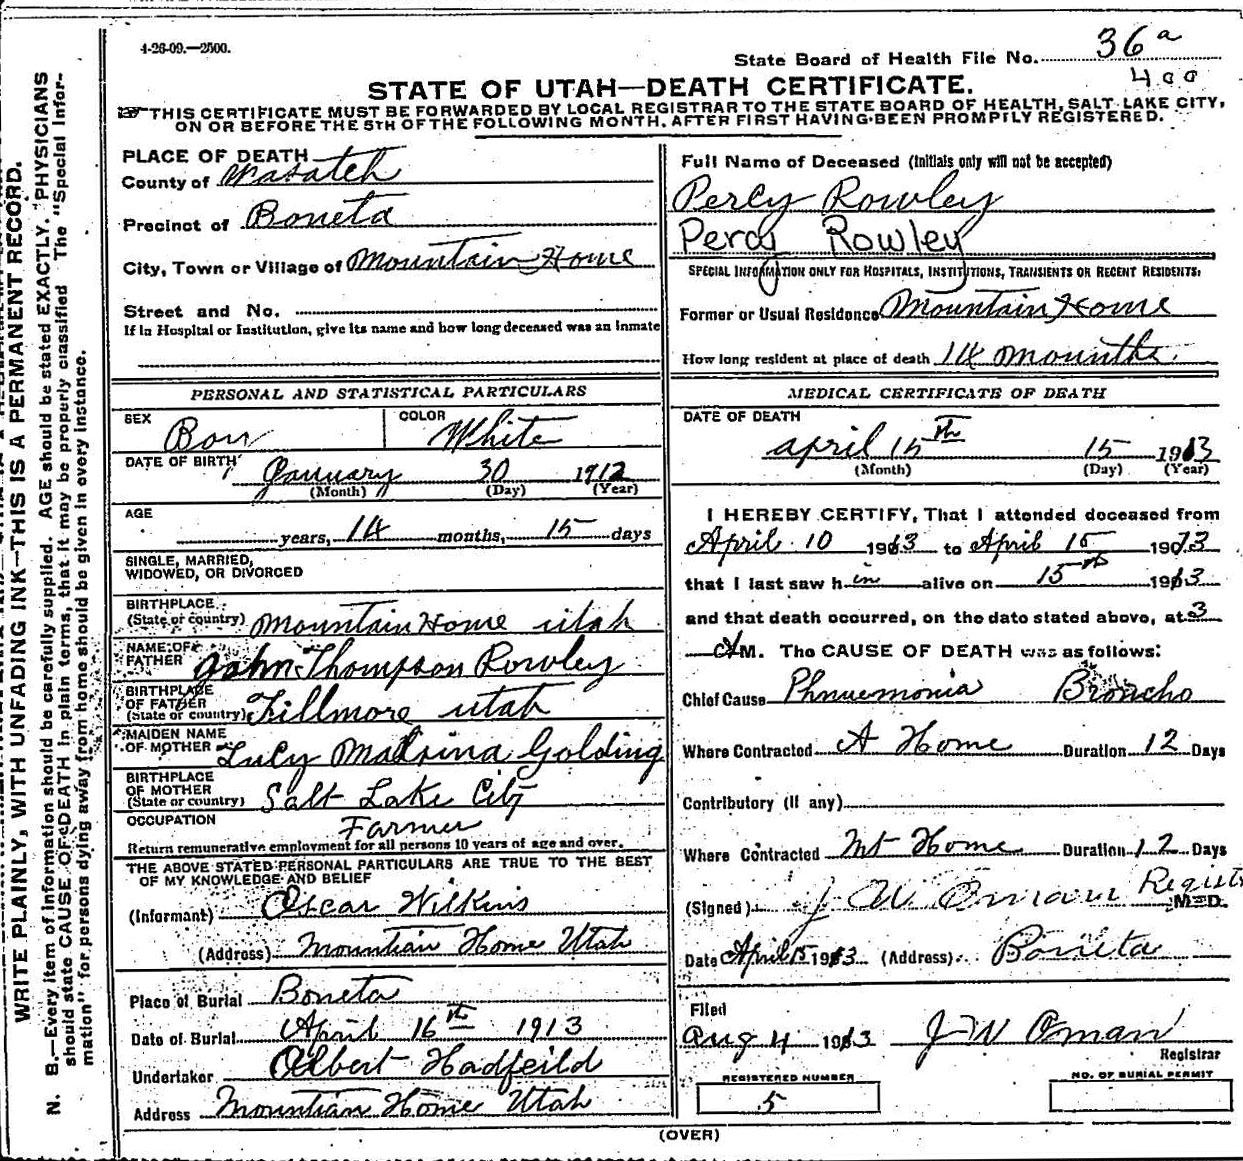 4-26-09.—2500.
State Board of Health File No. 36a
400
STATE OF UTAH—DEATH CERTIFICATE.
THIS CERTIFICATE MUST BE FORWARDED BY LOCAL REGISTRAR TO THE STATE BOARD OF HEALTH, SALT LAKE CITY,
ON OR BEFORE THE 5TH OF THE FOLLOWING MONTH, AFTER FIRST HAVING BEEN PROMPTLY REGISTERED.
WRITE PLAINLY, WITH UNFADING INK—THIS IS A PERMANENT RECORD.
N. B.—Every item of information should be carefully supplied. AGE should be stated EXACTLY. PHYSICIANS
should state CAUSE OF DEATH in plain terms, that it may be properly classified The "Special Infor-
mation" for persons dying away from home should be given in every instance.
PLACE OF DEATH
County of Wasatch
Precinct of Boneta
City, Town or Village of Mountain Home
Street and No.
If in Hospital or Institution, give its name and how long deceased was an inmate
PERSONAL AND STATISTICAL PARTICULARS
SEX Boy COLOR White
DATE OF BIRTH January 30 1912
(Month) (Day) (Year)
AGE
years, 14 months, 15 days
SINGLE, MARRIED,
WIDOWED, OR DIVORCED
BIRTHPLACE
(State or country) Mountain Home utah
NAME OF
FATHER John Thompson Rowley
BIRTHPLACE
OF FATHER
(State or country) Fillmore utah
MAIDEN NAME
OF MOTHER Lucy Malsina Golding
BIRTHPLACE
OF MOTHER
(State or country) Salt Lake City
OCCUPATION Farmer
Return remunerative employment for all persons 10 years of age and over.
THE ABOVE STATED PERSONAL PARTICULARS ARE TRUE TO THE BEST
OF MY KNOWLEDGE AND BELIEF
(Informant) Oscar Wilkins
(Address) Mountian Home Utah
Place of Burial Boneta
Date of Burial April 16th 1913
Undertaker Albert Hadfeild
Address Mountian Home Utah
Full Name of Deceased (Initials only will not be accepted)
Percy Rowley
Percy Rowley
SPECIAL INFORMATION ONLY FOR HOSPITALS, INSTITUTIONS, TRANSIENTS OR RECENT RESIDENTS.
Former or Usual Residence Mountain Home
How long resident at place of death 14 mounths
MEDICAL CERTIFICATE OF DEATH
DATE OF DEATH
april 15th 15 1913
(Month) (Day) (Year)
I HEREBY CERTIFY, That I attended deceased from
April 10 1913 to April 15 1913
that I last saw him alive on 15th 1913
and that death occurred, on the date stated above, at 3
AM. The CAUSE OF DEATH was as follows:
Chief Cause Phnuemonia Broncho
Where Contracted A Home Duration 12 Days
Contributory (if any)
Where Contracted Mt Home Duration 12 Days
(Signed) J W Oman Regist M-D.
Date April 15 1913 (Address) Boneta
Filed
Aug 4 1913 J W Oman
Registrar
REGISTERED NUMBER
5
NO. OF BURIAL PERMIT
(OVER)